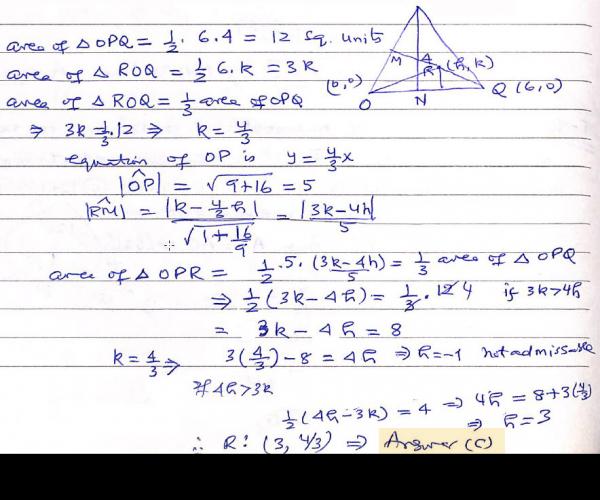 area of △ OPQ = 1/2 · 6 · 4 = 12 sq. units
area of △ ROQ = 1/2 6.k = 3k
area of △ ROQ = 1/3 area of OPQ
⇒ 3k = 1/3 · 12 ⇒ k = 4/3
equation of OP is y = 4/3 x
|OP| = √(9+16) = 5
|RM| = |k - 4/3 h| / √(1 + 16/9) = |3k - 4h| / 5
area of △ OPR = 1/2 · 5 · (3k - 4h)/5 = 1/3 area of △ OPQ
⇒ 1/2 (3k - 4h) = 1/3 · 12 4 if 3k > 4h
= 3k - 4h = 8
k = 4/3 ⇒ 3(4/3) - 8 = 4h ⇒ h = -1 not admissable
If 4h > 3k
1/2 (4h - 3k) = 4 ⇒ 4h = 8 + 3(4/3)
⇒ h = 3
∴ R : (3, 4/3) ⇒ Answer (C)
M
4
R
(h, k)
(0,0)
O
N
Q (6,0)